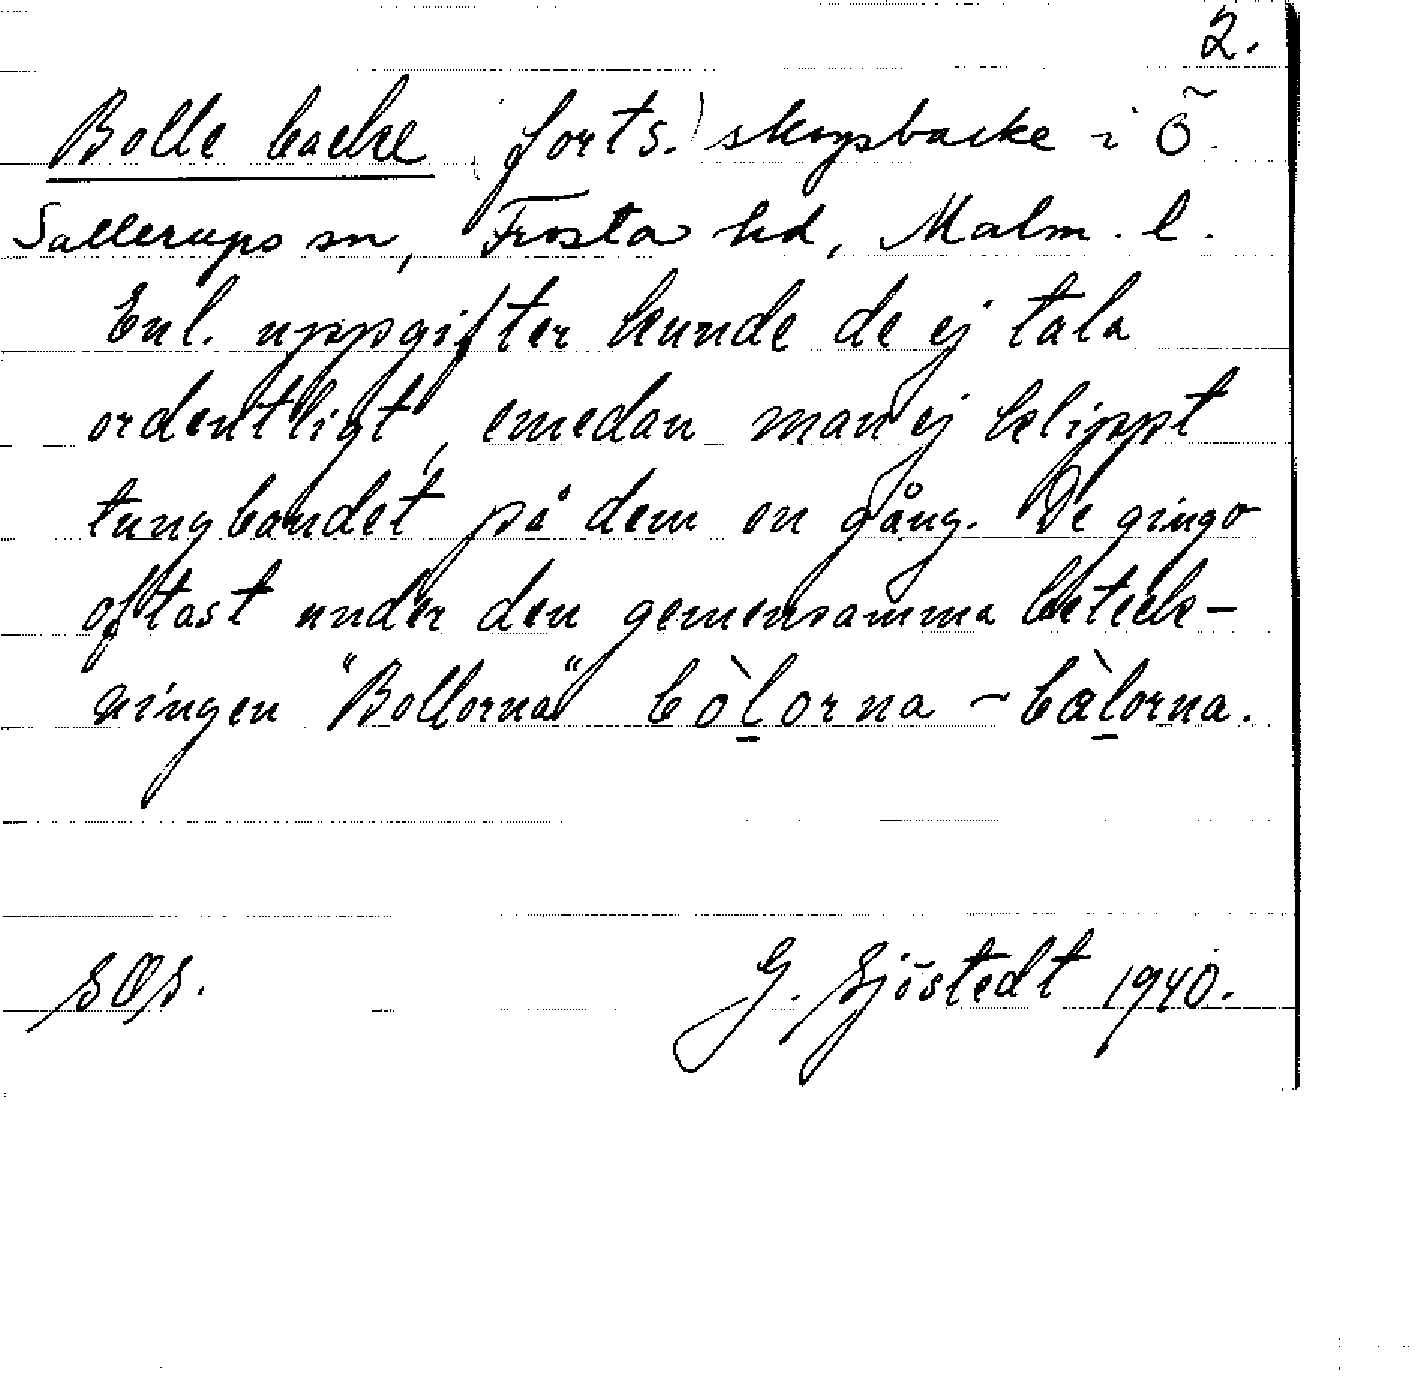 2.
Bolle backe (forts.) skogsbacke i Ö.
Sallerups sn, Frosta hd, Malm. l.
Enl. uppgifter kunde de ej tala
ordentligt, emedan man ej klippt
tungbandet på dem en gång. De gingo
oftast under den gemensamma beteck-
ningen "Bollorna" bòl̲orna ~ bàl̲orna.
SOS.
G. Sjöstedt 1940.